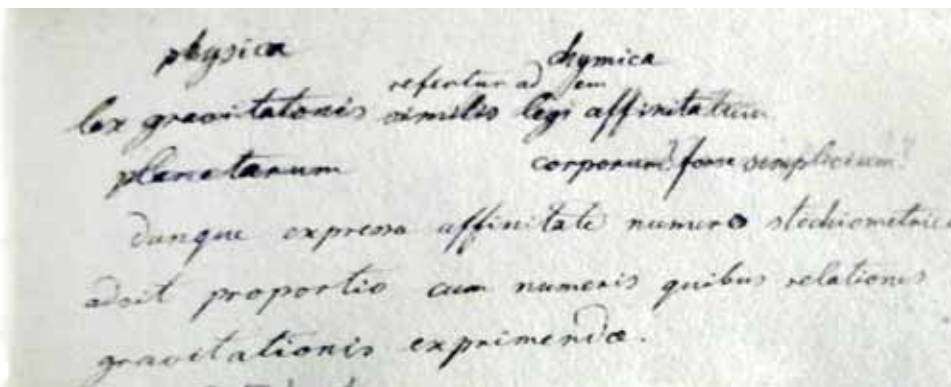 physica chymica
refertur ad em
lex gravitationis similis legi affinitatum
planetarum corporum? forse simplicium?
dunque expressa affinitate numero stochiometrico
adsit proportio cum numeris quibus relationes
gravitationis exprimendæ.